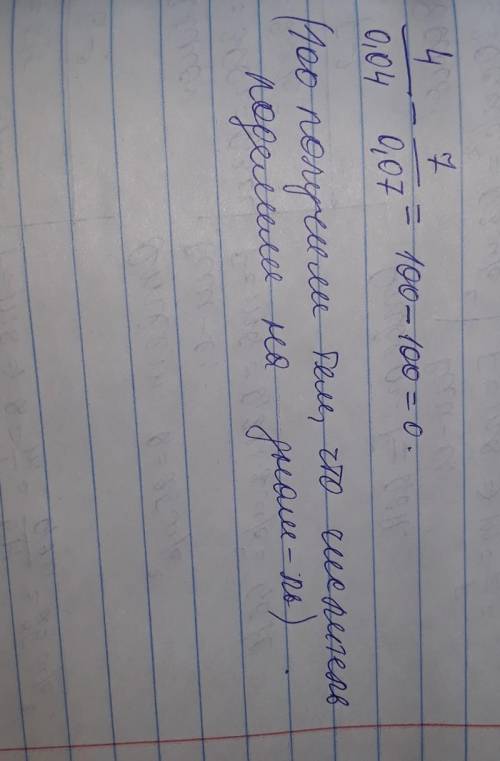 4/0,04 - 7/0,07 = 100 - 100 = 0.
(100 получили тем, что числитель
поделили на знам-ль).